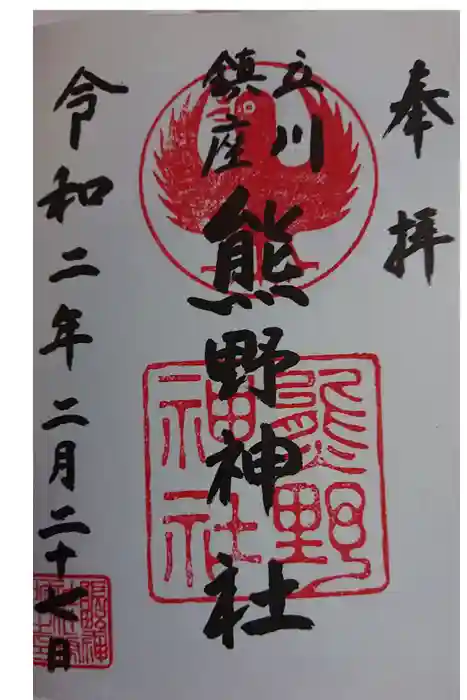 奉拝
立川
鎮座
熊野神社
熊野
神社
令和二年二月二十七日